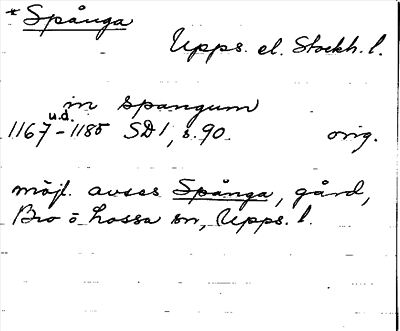 * Spånga
Upps. el. Stockh. l.
in spangum
u.d.
1167-1185 SD1, s. 90 orig.
möjl. avses Spånga, gård,
Bro o Lossa sn, Upps. l.